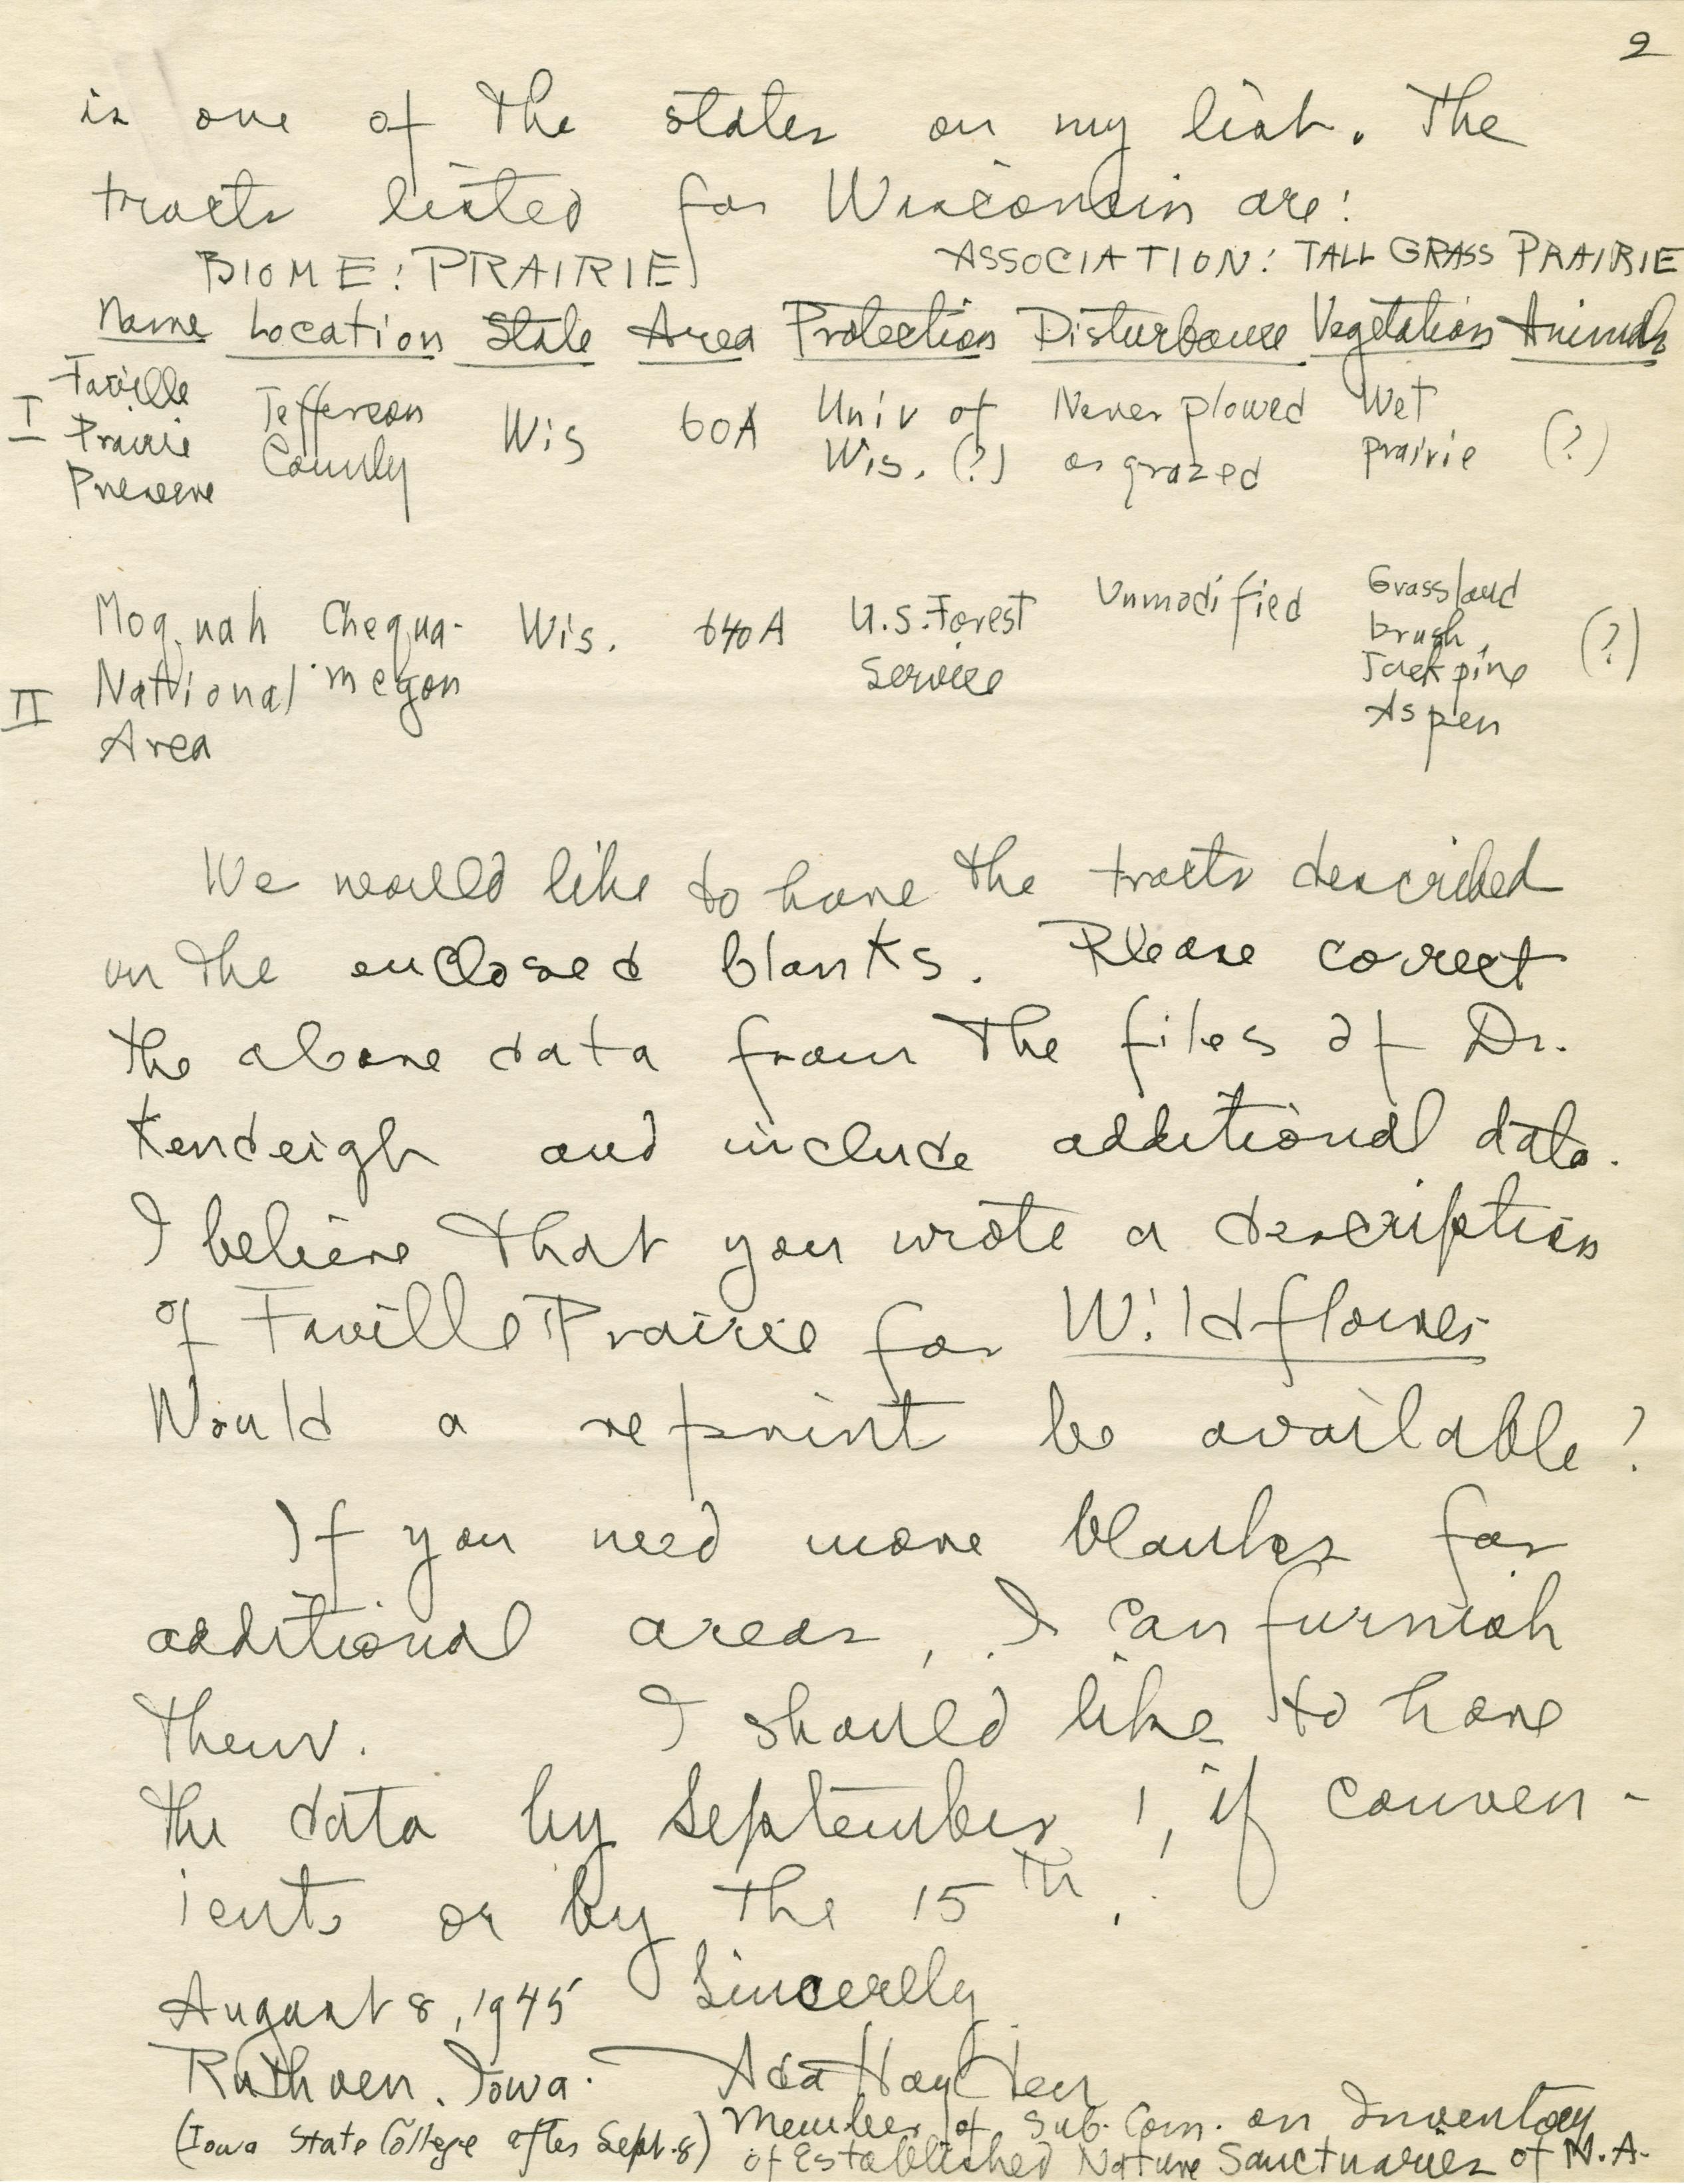 2
is one of the states on my list. The
tracts listed for Wisconsin are:
BIOME: PRAIRIE ASSOCIATION: TALL GRASS PRAIRIE
Name Location State Area Protection Disturbance Vegetation Animals
I Faville Prairie Preserve Jefferson County Wis 60A Univ of Wis. (?) Never plowed or grazed Wet prairie (?)
II Moquah National Area Chequa-megon Wis. 640A U.S. Forest Service Unmodified Grassland brush, Jack pine Aspen (?)
We would like to have the tracts described
on the enclosed blanks. Please correct
the above data from the files of Dr.
Kendeigh and include additional data.
I believe that you wrote a description
of Faville Prairie for Wildflower
Would a reprint be available?
If you need more blanks for
additional areas, I can furnish
them. I should like to have
the data by September 1, if conven-
ient or by the 15th.
August 8, 1945 Sincerely
Ruthven, Iowa. Ada Hayden
(Iowa State College after Sept. 8) Member of Sub. Com. on Inventory
of Established Nature Sanctuaries of N.A.